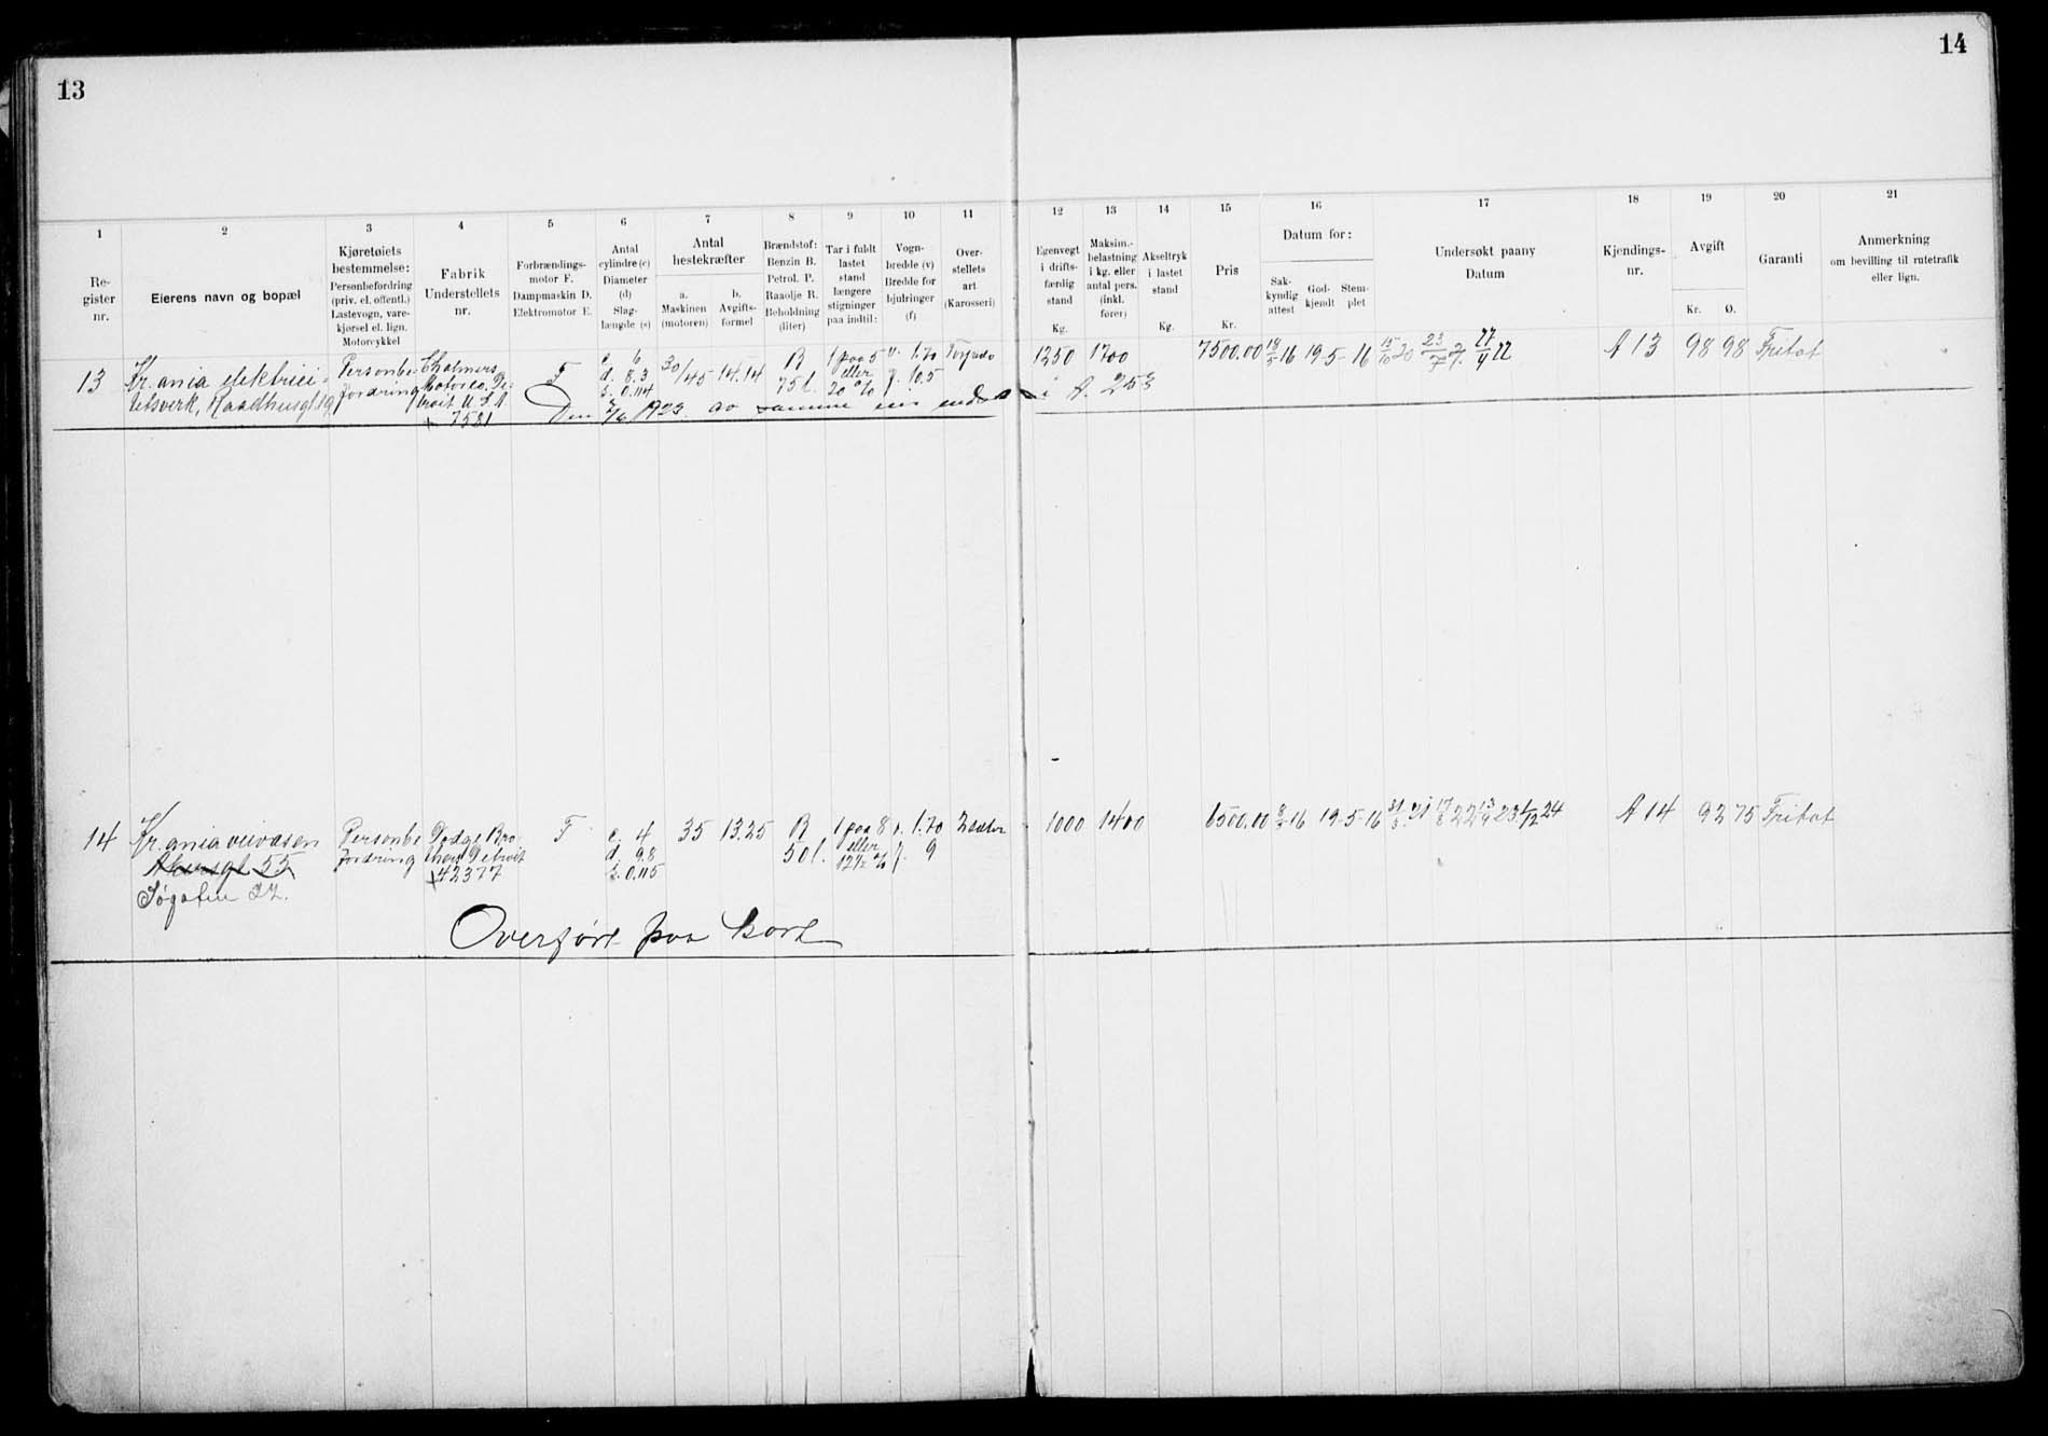 13
14
1 2 3 4 5 6 7 8 9 10 11 12 13 14 15 16 17 18 19 20 21
Re-
gister
nr.
Eierens navn og bopæl
Kjøretøiets
bestemmelse:
Personbefordring
(priv. el. offentl.)
Lastevogn, vare-
kjørsel el. lign.
Motorcykkel
Fabrik
Understellets
nr.
Forbrændings-
motor F.
Dampmaskin D.
Elektromotor E.
Antal
cylindre (c)
Diameter
(d)
Slag-
længde (s)
Antal
hestekræfter
a.
Maskinen
(motoren)
b.
Avgifts-
formel
Brændstof:
Benzin B.
Petrol. P.
Raaolje R.
Beholdning
(liter)
Tar i fuldt
lastet
stand
længere
stigninger
paa indtil:
Vogn-
bredde (v)
Bredde for
hjulringer
(f)
Over-
stellets
art
(Karosseri)
Egenvegt
i drifts-
færdig
stand
Kg.
Maksim.-
belastning
i kg. eller
antal pers.
(inkl.
fører)
Akseltryk
i lastet
stand
Kg.
Pris
Kr.
Datum for:
Sak-
kyndig
attest
God-
kjendt
Stem-
plet
Undersøkt paany
Datum
Kjendings-
nr.
Avgift
Kr. Ø.
Garanti
Anmerkning
om bevilling til rutetrafik
eller lign.
13 Kr.ania elektrici- Personbe- Chalmers F c. 6 30/45 14.14 B 1 paa 5 v. 1.70 Torpedo 1250 1700 7500.00 18/5-16 19-5-16 15/10 20 23/7 27/9 22 A 13 98 98 Fritat
tetsverk, Raadhusgt. 19 fordring Motor co. De- d. 8.3 75 l. eller f. 10.5
troit U.S.A. s. 0.114 20 %
+ 7581 Den 2/6 1923 av samme eier i A. 253
14 Kr.ania veivæsen Personbe- Dodge Bro- F c. 4 35 13.25 B 1 paa 8 v. 1.70 1000 1400 6500.00 16 19-5-16 31/3 21 17/8 22 13/9 23 1/12 24 A 14 92 75 Fritat
Akersgt 55 fordring thers Detroit d. 9.8 50 l. eller f. 9
+42377 s. 0.115 12½ %
Søgaten
Overført paa kort